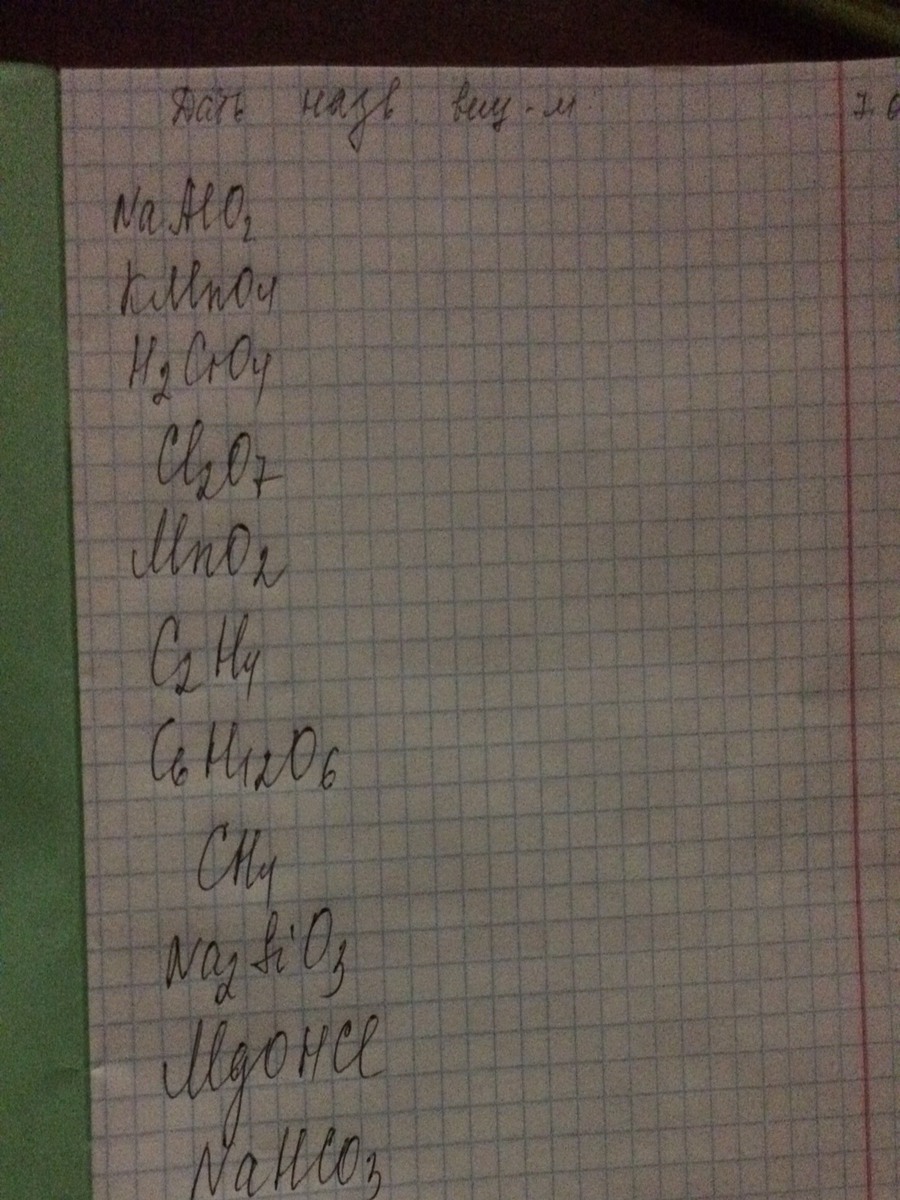 Дать назв вещ-м
NaAlO2
KMnO4
H2CrO4
Cl2O7
MnO2
C2H4
C6H12O6
CH4
Na2SiO3
MgOHCl
NaHCO3